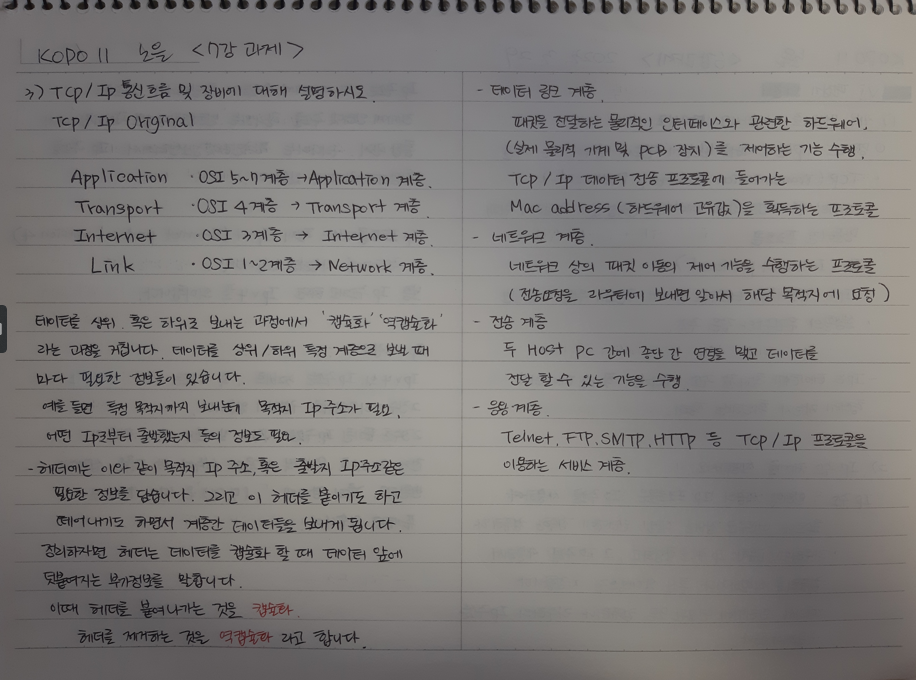 KODO 11 노을 <7강 과제>
3) TCP / Ip 통신흐름 및 장비에 대해 설명하시오.
TCP / Ip Original
Application · OSI 5~7 계층 → Application 계층.
Transport · OSI 4계층 → Transport 계층
Internet · OSI 3계층 → Internet 계층.
Link · OSI 1~2계층 → Network 계층.
데이터를 상위, 혹은 하위로 보내는 과정에서 '캡슐화' '역캡슐화'
라는 과정을 거칩니다. 데이터를 상위/하위 특정 계층으로 보낼 때
마다 필요한 정보들이 있습니다.
예를 들면 특정 목적지까지 보내는데 목적지 Ip 주소가 필요.
어떤 Ip로부터 출발했는지 등의 정보도 필요.
- 헤더에는 이와 같이 목적지 Ip 주소, 혹은 출발지 Ip주소같은
필요한 정보를 담습니다. 그리고 이 헤더를 붙이기도 하고
떼어내기도 하면서 계층간 데이터들을 보내게 됩니다.
정리하자면 헤더는 데이터를 캡슐화 할 때 데이터 앞에
덧붙여지는 부가정보를 말합니다.
이때 헤더를 붙여나가는 것을 캡슐화.
헤더를 제거하는 것을 역캡슐화 라고 합니다.
- 데이터 링크 계층.
패킷을 전달하는 물리적인 인터페이스와 관련한 하드웨어.
(실제 물리적 기계 및 PCB 장치) 를 제어하는 기능 수행.
TCP / Ip 데이터 전송 프로토콜에 들어가는
Mac address (하드웨어 고유값)을 획득하는 프로토콜
- 네트워크 계층.
네트워크 상의 패킷 이동의 제어 기능을 수행하는 프로토콜
(전송요청을 라우터에 보내면 알아서 해당 목적지에 요청)
- 전송 계층
두 Host PC 간에 종단 간 연결을 맺고 데이터를
전달 할 수 있는 기능을 수행.
- 응용 계층.
Telnet, FTP, SMTP, HTTP 등 TCP / Ip 프로토콜을
이용하는 서비스 계층.